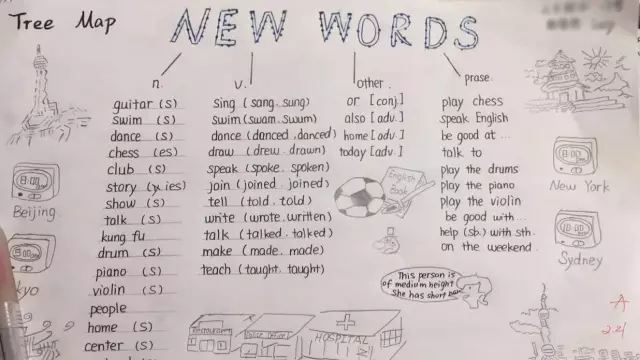 Tree Map
NEW WORDS
n.
guitar (s)
swim (s)
dance (s)
chess (es)
club (s)
story (y.ies)
show (s)
talk (s)
kung fu
drum (s)
piano (s)
violin (s)
people
home (s)
center (s)
v.
sing (sang. sung)
swim (swam. swum)
dance (danced. danced)
draw (drew. drawn)
speak (spoke. spoken)
join (joined. joined)
tell (told. told)
write (wrote. written)
talk (talked. talked)
make (made. made)
teach (taught. taught)
other
or [conj.]
also [adv.]
home [adv.]
today [adv.]
prase.
play chess
speak English
be good at ...
talk to
play the drums
play the piano
play the violin
be good with ...
help (sb.) with sth.
on the weekend.
8:00
Beijing
9:00
kyo
New York
Sydney
English
Book
This person is
of medium height
She has short
Restaurant
Police Office
HOSPITAL
A